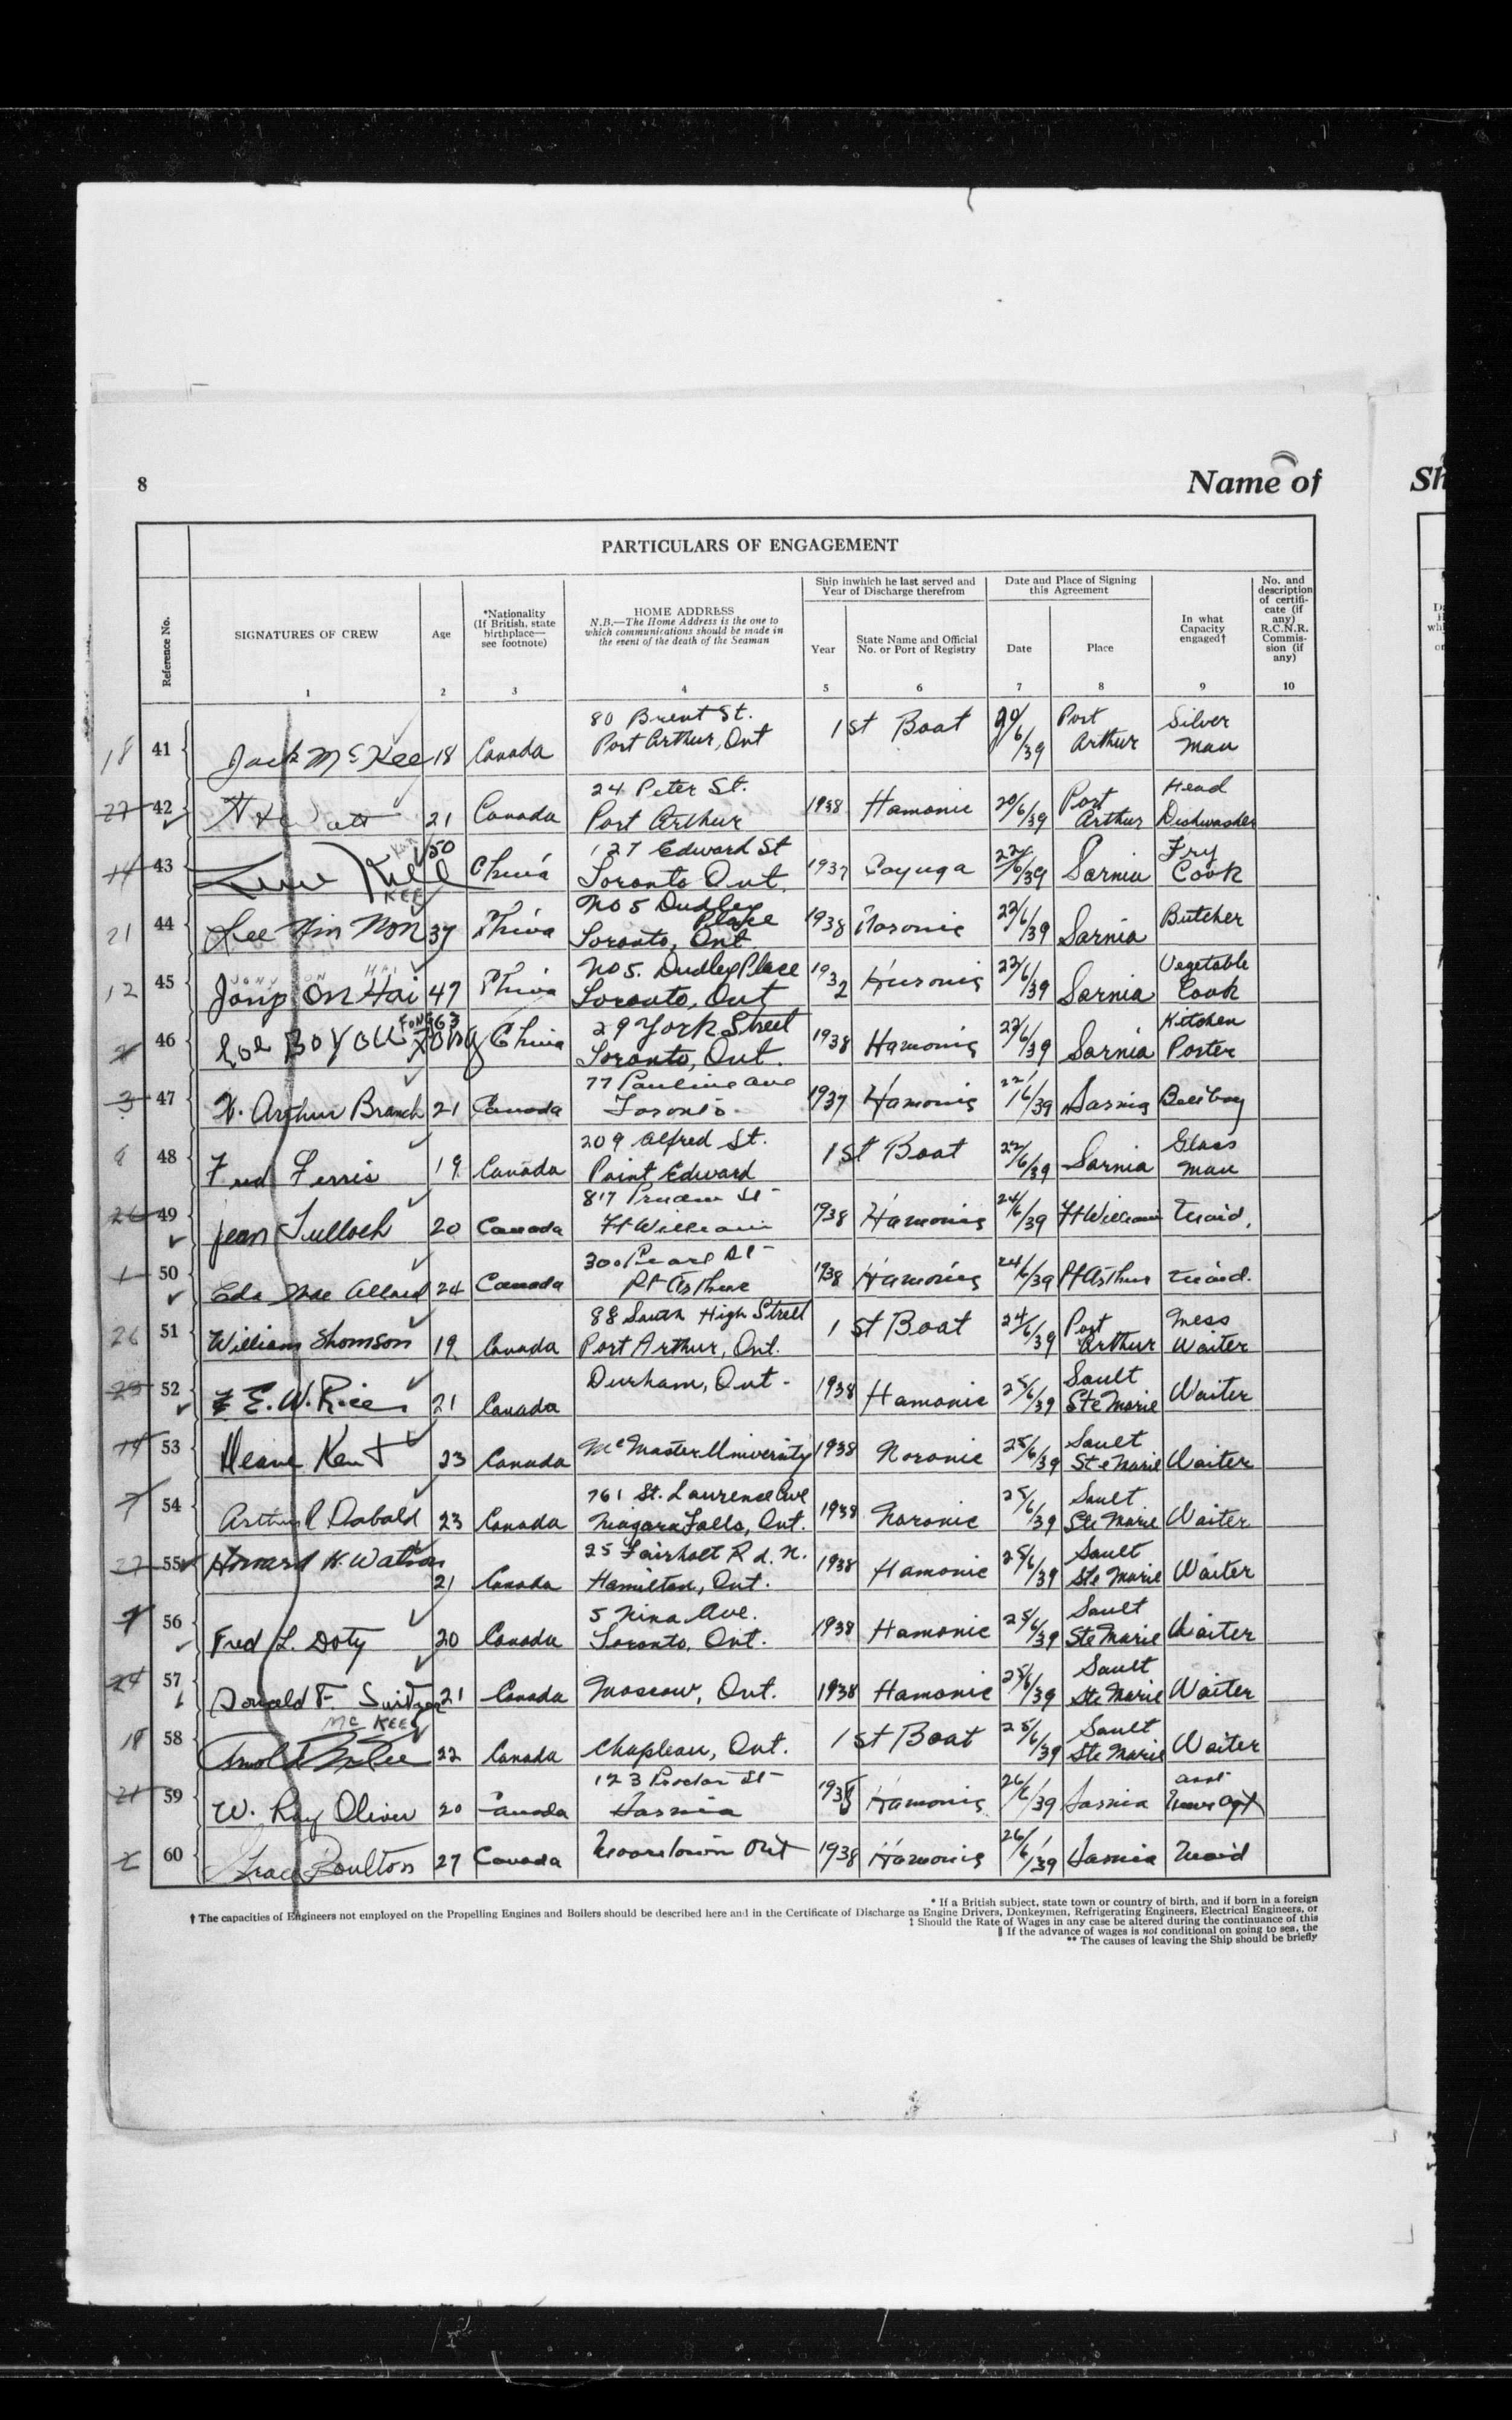 8
Name of
Sh
PARTICULARS OF ENGAGEMENT
Reference No.
SIGNATURES OF CREW
Age
*Nationality
(If British, state
birthplace—
see footnote)
HOME ADDRESS
N.B.—The Home Address is the one to
which communications should be made in
the event of the death of the Seaman
Ship in which he last served and
Year of Discharge therefrom
Year
State Name and Official
No. or Port of Registry
Date and Place of Signing
this Agreement
Date
Place
In what
Capacity
engaged†
No. and
description
of certifi-
cate (if
any)
R.C.N.R.
Commis-
sion (if
any)
1 2 3 4 5 6 7 8 9 10
80 Brent St. Port Silver
18 41 Jack McKee 18 Canada Port Arthur, Ont 1st Boat 20/6/39 Arthur Man
24 Peter St. Head
27 42 21 Canada Port Arthur 1938 Hamonic 20/6/39 Port Arthur Dishwasher
127 Edward St Fry
14 43 50 China Toronto Ont. 1937 Cayuga 22/6/39 Sarnia Cook
KEE
No 5 Dudley Place
21 44 Lee 37 China Toronto, Ont 1938 22/6/39 Sarnia Butcher
JONG ON HAI
No 5. Dudley Place Vegetable
12 45 Jong On Hai 47 China Toronto, Ont 1932 Huronic 22/6/39 Sarnia Cook
FONG 63
29 York Street Kitchen
46 Bo You Fong China Toronto, Ont. 1938 Hamonic 22/6/39 Sarnia Porter
77 Pauline Ave
3 47 Arthur Branch 21 Canada Toronto. 1937 Hamonic 22/6/39 Sarnia Bellboy
209 Alfred St. Glass
8 48 Fred Ferris 19 Canada Point Edward 1st Boat 22/6/39 Sarnia Man
817 St
26 49 Jean Tulloch 20 Canada Ft William 1938 Hamonic 24/6/39 Ft William Maid.
300 Pearl St
1 50 Eda Mae Allard 24 Canada Pt Arthur 1938 Hamonic 24/6/39 Pt Arthur Maid.
88 South High Street Mess
26 51 William Thomson 19 Canada Port Arthur, Ont. 1st Boat 24/6/39 Port Arthur Waiter
Durham, Ont. Sault
23 52 E. W. Rice 21 Canada 1938 Hamonic 25/6/39 Ste Marie Waiter
53 Deane Kent 23 Canada McMaster University 1938 Noronic 25/6/39 Sault Ste Marie Waiter
761 St. Laurence Ave Sault
7 54 Arthur 23 Canada Niagara Falls, Ont. 1938 Noronic 25/6/39 Ste Marie Waiter
25 Fairholt Rd. N. Sault
27 55 Howard K. Watson 21 Canada Hamilton, Ont. 1938 Hamonic 25/6/39 Ste Marie Waiter
5 Nina Ave. Sault
56 Fred L. Doty 20 Canada Toronto, Ont. 1938 Hamonic 25/6/39 Ste Marie Waiter
24 57 Donald F. Switzer 21 Canada Moscow, Ont. 1938 Hamonic 25/6/39 Sault Ste Marie Waiter
Mc KEE
18 58 Arnold McKee 22 Canada Chapleau, Ont. 1st Boat 25/6/39 Sault Ste Marie Waiter
123 Proctor St asst
21 59 W. Ray Oliver 20 Canada Sarnia 1938 Hamonic 26/6/39 Sarnia News Agt
60 Grace Boulton 27 Canada Mooretown Ont 1938 Hamonic 26/6/39 Sarnia Maid
* If a British subject, state town or country of birth, and if born in a foreign
† The capacities of Engineers not employed on the Propelling Engines and Boilers should be described here and in the Certificate of Discharge as Engine Drivers, Donkeymen, Refrigerating Engineers, Electrical Engineers, or
‡ Should the Rate of Wages in any case be altered during the continuance of this
‖ If the advance of wages is not conditional on going to sea, the
** The causes of leaving the Ship should be briefly